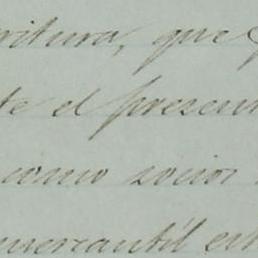 ritura, que
te el present
como socios
mercantil est